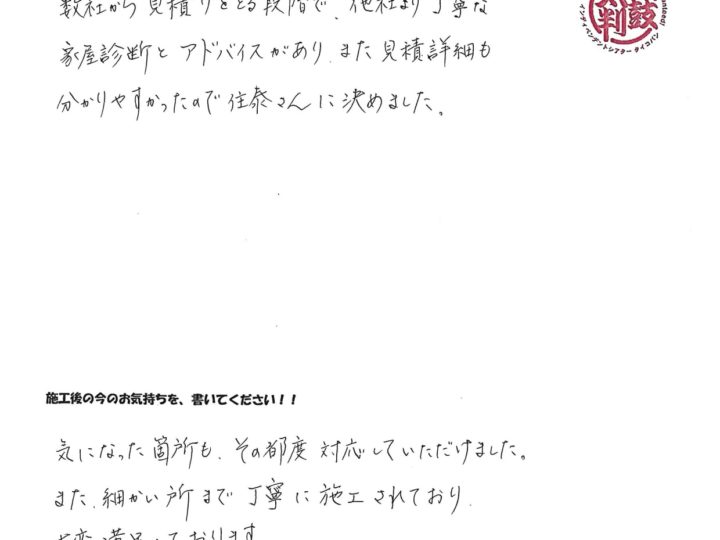 数社から見積りをとる段階で、他社より丁寧な
家屋診断とアドバイスがあり、また見積詳細も
分かりやすかったので住泰さんに決めました。
鼓判
インディペンデントシアター タイコバン
施工後の今のお気持ちを、書いてください！！
気になった箇所も、その都度対応していただけました。
また、細かい所まで丁寧に施工されており、
大変満足しております